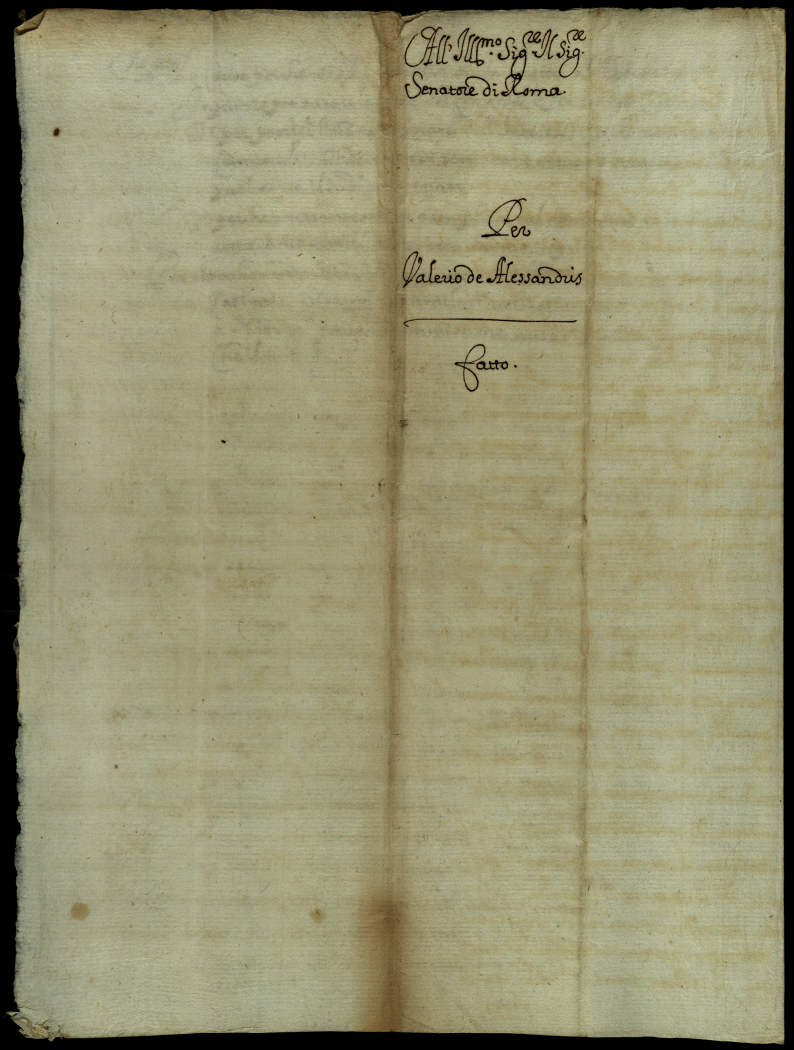 All' Ill.mo Sig.re Il Sig.re
Senatore di Roma
Per
Valerio de Alessandris
fatto.